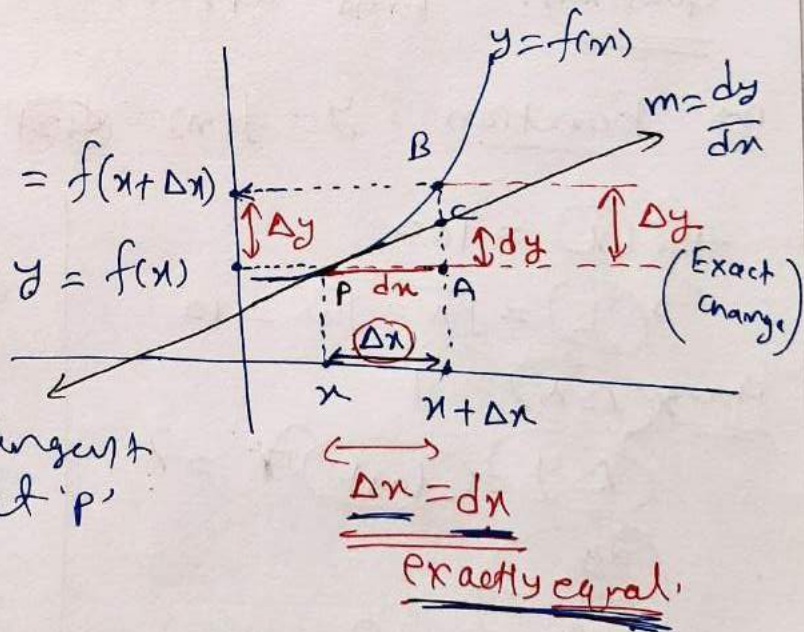 y = f(x)
m = dy/dx
B
= f(x+Δx)
C
Δy
dy
Δy
y = f(x)
P
dx
A
(Exact
change)
Δx
x
x+Δx
angent
t 'p'
Δx = dx
exactly equal.